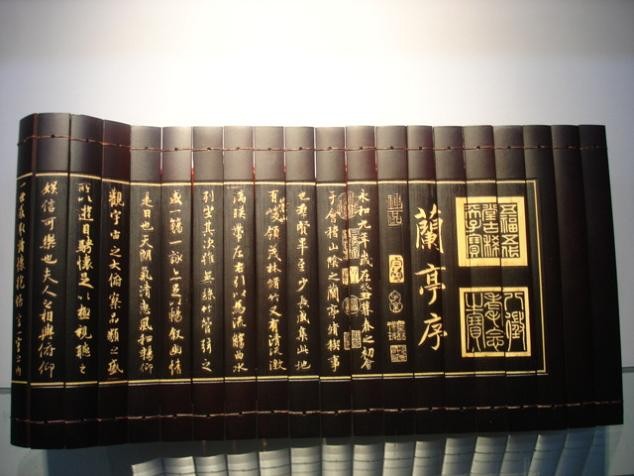 五福五代堂古稀天子寶
八徵耄念之寶
蘭亭序
永和九年歲在癸丑暮春之初會
于會稽山陰之蘭亭脩禊事
也群賢畢至少長咸集此地
有崇山峻領茂林脩竹又有清流激
湍暎帶左右引以為流觴曲水
列坐其次雖無絲竹管弦之
盛一觴一詠亦足以暢叙幽情
是日也天朗氣清惠風和暢仰
觀宇宙之大俯察品類之盛
所以遊目騁懷足以極視聽之
娛信可樂也夫人之相與俯仰
一世或取諸懷抱悟言一室之內